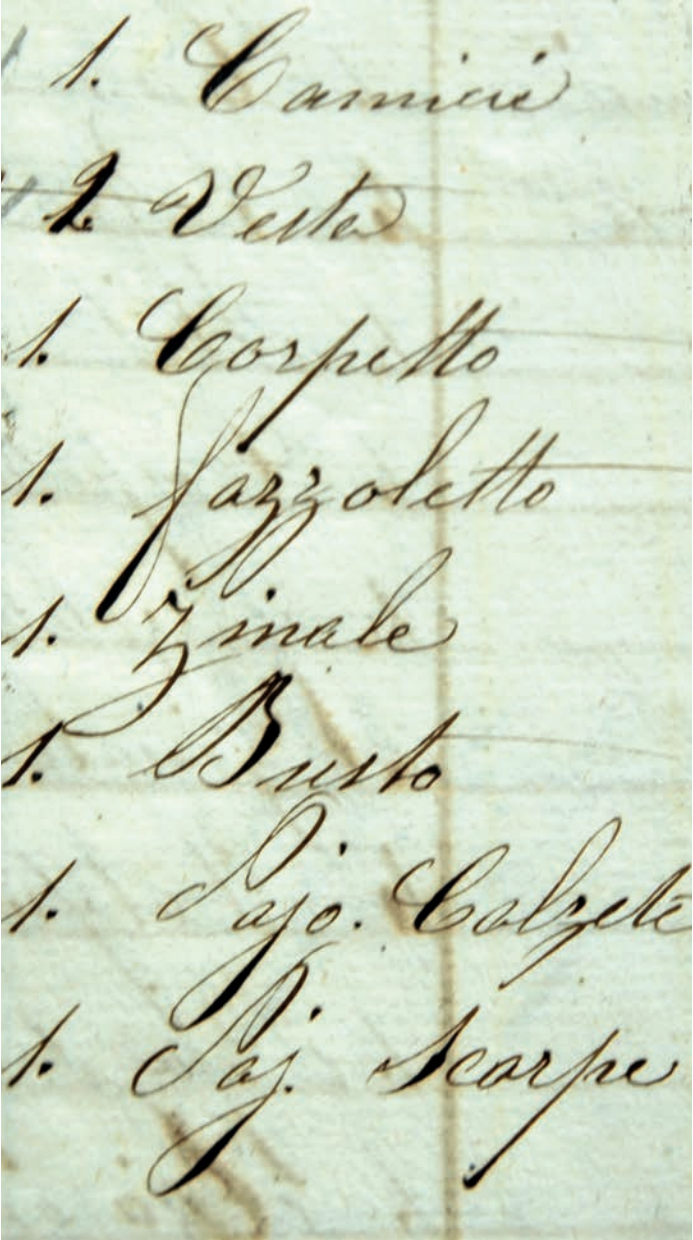 1. Camicie
2. Vesta
1. Corpetto
1. fazzoletto
1. Zinale
1. Busto
1. Pajo. Calzete
1. Paj. Scarpe